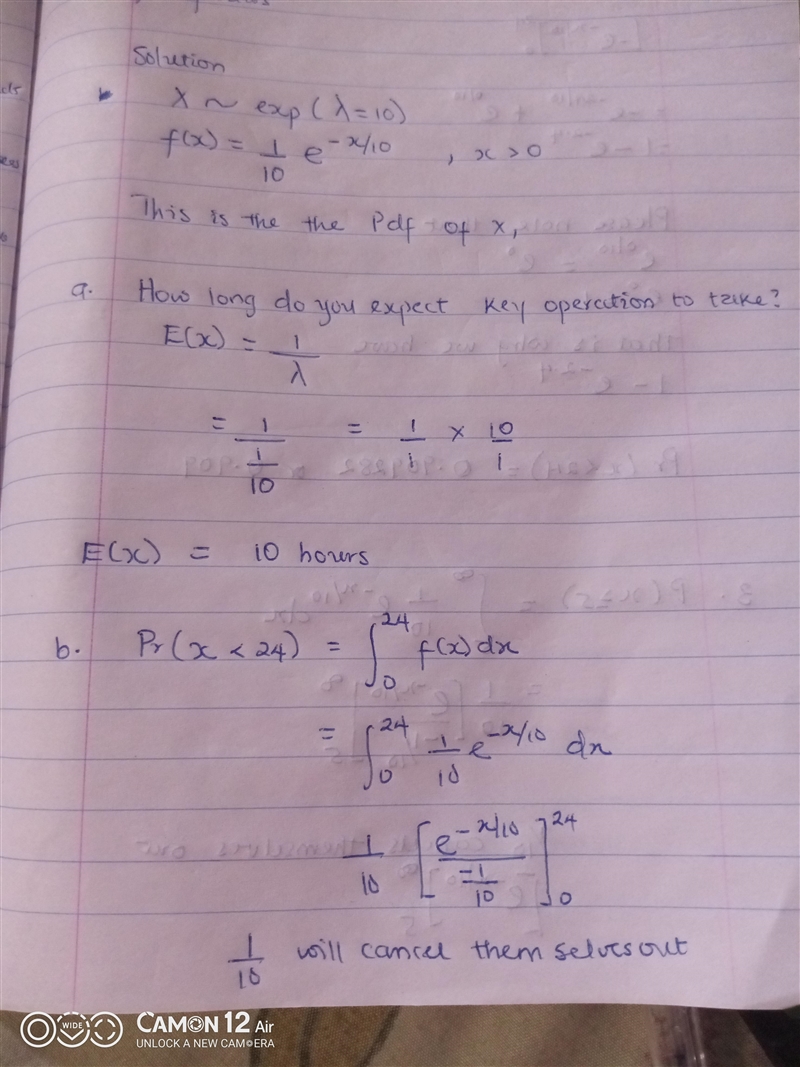 Solution
X ~ exp(λ=10)
f(x) = 1/10 e^-x/10 , x>0
This is the the Pdf of x,
a. How long do you expect key operation to take?
E(x) = 1/λ
= 1/(1/10) = 1/1 × 10/1
E(x) = 10 hours
b. Pr(x < 24) = ∫_0^24 f(x) dx
= ∫_0^24 1/10 e^-x/10 dx
1/10 [e^-x/10 / (-1/10)]_0^24
1/10 will cancel them selves out
WIDE
CAMON 12 Air
UNLOCK A NEW CAMERA